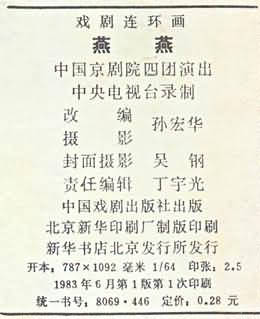 戏剧连环画
燕 燕
中国京剧院四团演出
中央电视台录制
改 编
摄 影
孙宏华
封面摄影 吴 钢
责任编辑 丁宇光
中国戏剧出版社出版
北京新华印刷厂制版印刷
新华书店北京发行所发行
开本：787×1092 毫米 1/64 印张：2.5
1983年6月第1版第1次印刷
统一书号：8069·446 定价：0.28 元